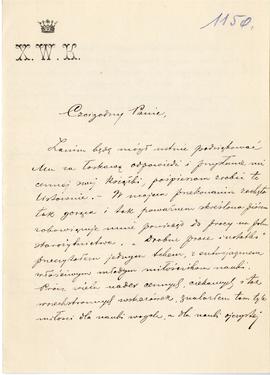 1150.
X. W. K.
Czcigodny Panie,
Zanim będę mógł ustnie podziękować
Mu za łaskawą odpowiedź i przysłanie mi
cennej swej książki, pospieszam zrobić to
listownie. — W mojem przekonaniu zachęta
tak gorąca i tak poważnem skreślona piórem
zobowiązuje mnie pracy na polu
starożytnictwa. — „Drobne prace i notatki"
przeczytałem jednym tchem, z entuzyazmem
właściwym młodym miłośnikom nauki.
Prócz wielu nader cennych, ciekawych i tak
wszechstronnych wskazówek, znalazłem tam tyle
miłości dla nauki wogóle, a dla nauki ojczystej